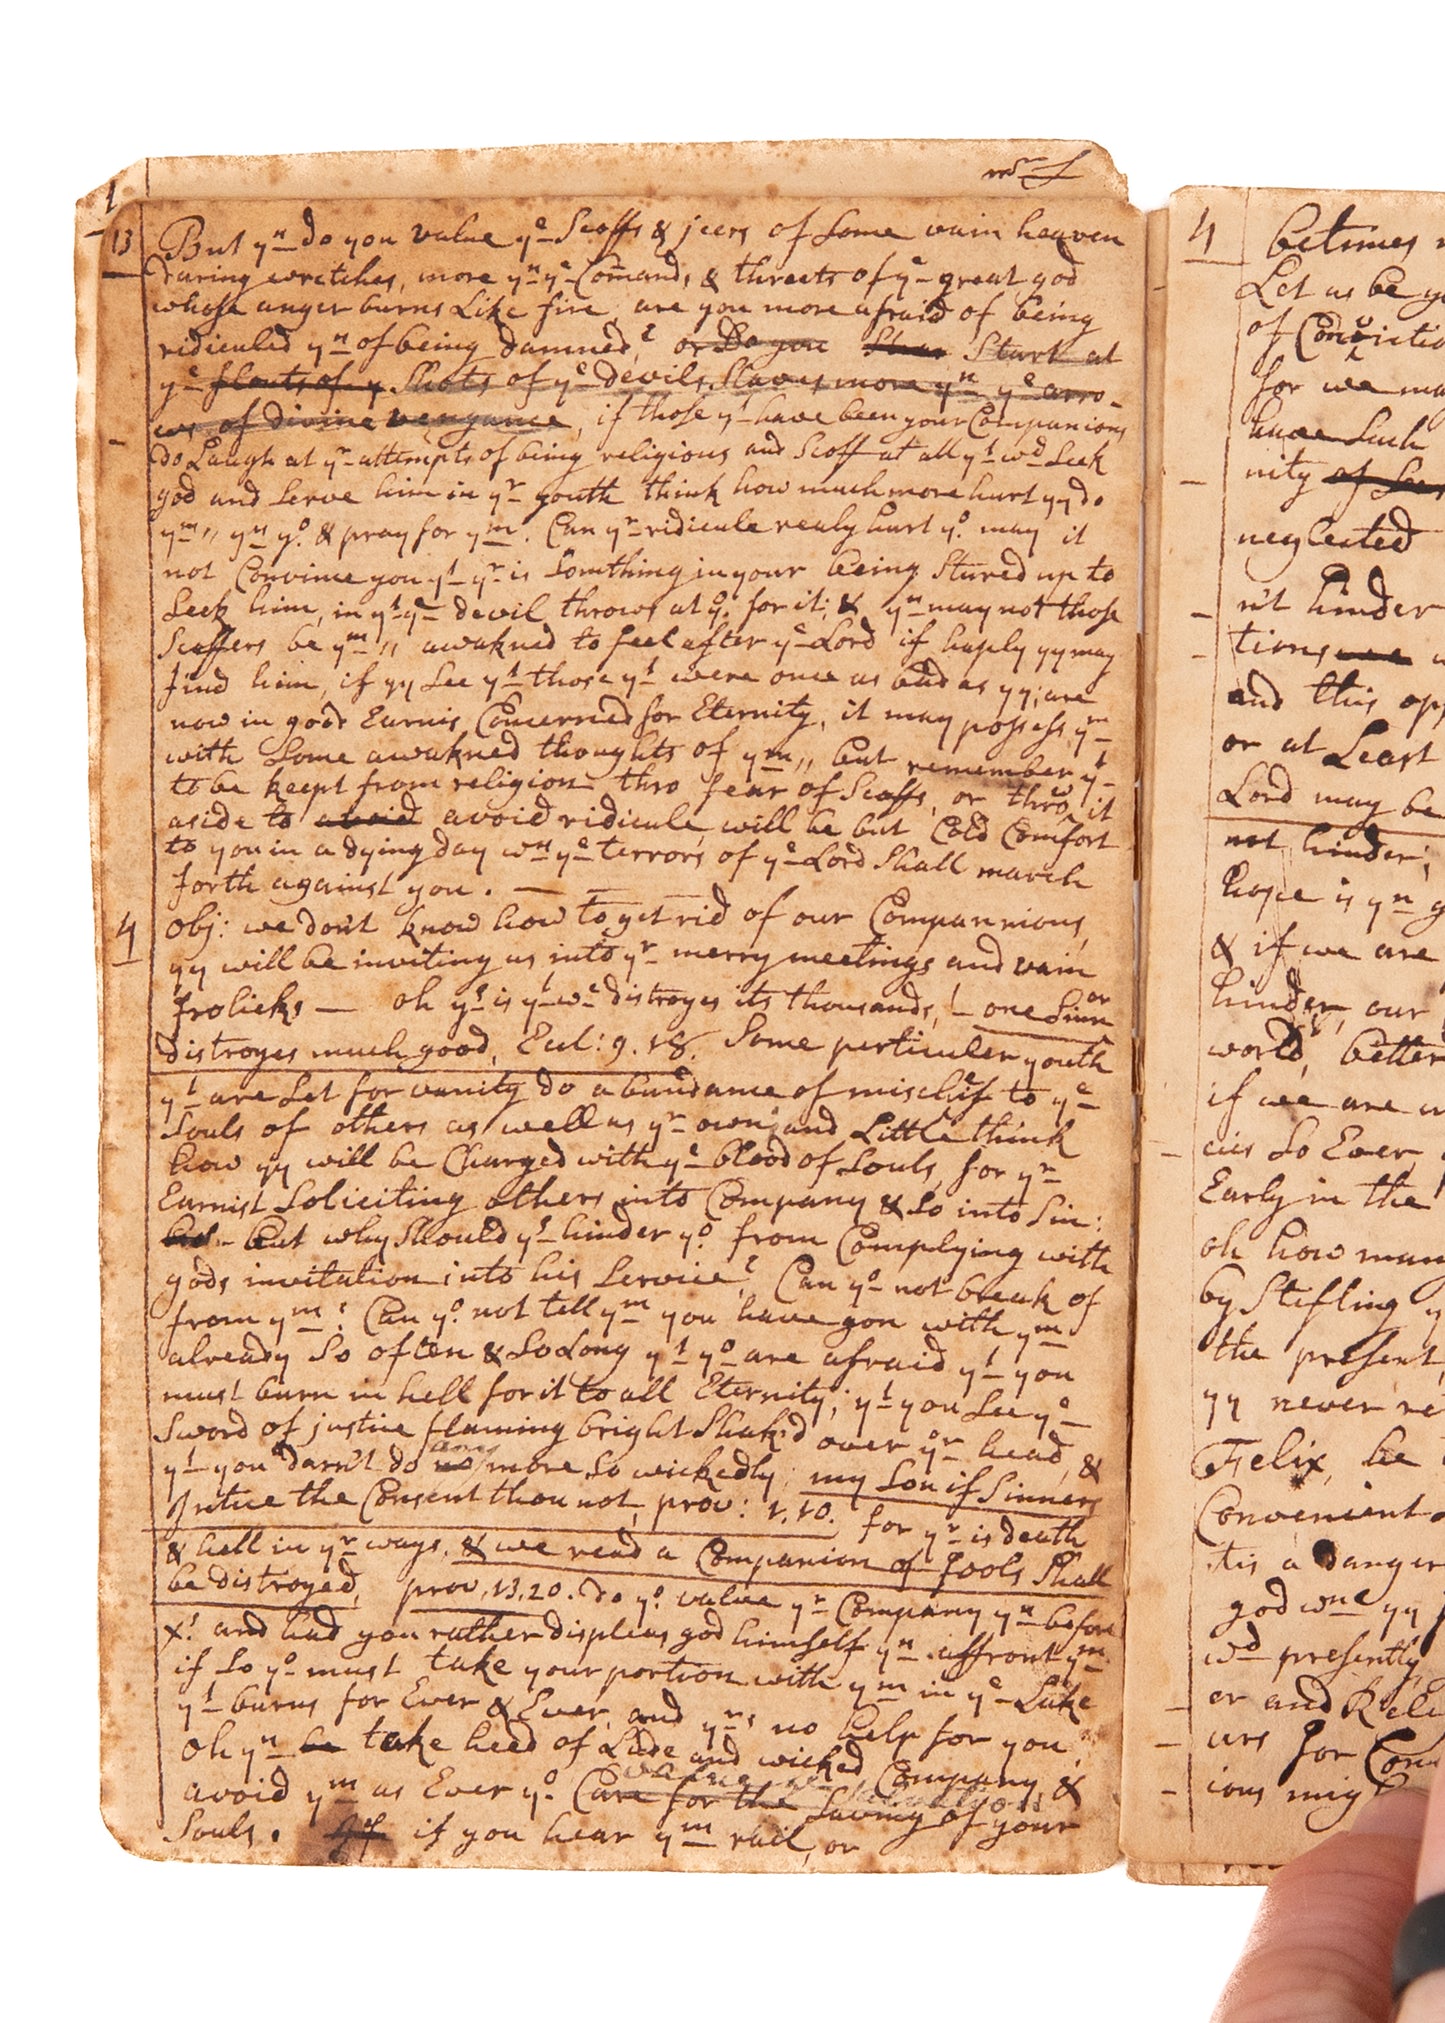 1
13
But yn do you value ye Scoffs & jeers of Some vain heaven
daring wretches, more yn ye Comands, & threets of ye great god
whose anger burns Like fire, are you more afraid of being
ridiculed yn of being damned? or Do you Start at
ye flouts of y Shots of ye devils Slaves more yn ye arro-
ws of divine vengance, if those yt have been your Companions
do Laugh at yr attempts of being religious and Scoff at all yt wd Seek
god and Serve him in yr youth think how much more hurt yy do
ym,, yn yo. & pray for ym. Can yr ridicule realy hurt yo. may it
not Convince you yt yr is Somthing in your being Stured up to
Seek him, in yt ye devil throws at yo. for it; & yn may not those
Scoffers be ym,, awakned to feel after ye Lord if haply yy may
find him, if yy See yt those yt were once as bad as yy; are
now in good Earnis Concerned for Eternity, it may possess ym
with Some awakned thoughts of ym,, but remember yt
to be keept from religion thro fear of Scoffs, or throw it
aside to avoid avoid ridicule, will be but Cold Comfort
to you in a dying day wn ye terrors of ye Lord Shall march
forth against you. —
4
Obj: we don't know how to get rid of our Companions,
yy will be inviting us into yr merry meetings and vain
frolicks — oh ys is yt wc distroyes its thousands, one Sinnor
distroyes much good, Ecel: 9. 18. Some perticuler youth
yt are Set for vanity do abundance of mischief to ye
Souls of others as well as yr own; and Little think
how yy will be Charged with ye blood of Souls, for yr
Earnist Soliciting others into Company & So into Sin:
but - but why Should yt hinder yo. from Complying with
gods invitation into his Service? Can yo not break of
from ym? Can yo. not tell ym you have gon with ym
already So often & So Long yt yo are afraid yt you
must burn in hell for it to all Eternity; yt you See ye
Sword of justice flaming bright Shak'd over yr head, &
yt you darn't do no any more So wickedly; my Son if Sinners
Intice the Consent thou not, prov: 1. 10. for yr is death
& hell in yr ways, & we read a Companion of fools Shall
be distroyed, prov. 13. 20. do yo. value yr Company yn before
Xt. and had you rather displeas god himself yn affront ym
if So yo must take your portion with ym in ye Lake
yt burns for Ever & Ever, and yrs no help for you,
Oh yn be take heed of Lude and wicked Company &
avoid ym as Ever yo. Care for the Saving of your
Souls. If if you hear ym rail, or
4
betimes
Let us be
of Convictio
for we ma
have Such
nity of
neglected
n't hinder
tions
and this opp
or at Least
Lord may be
not hinder;
hope is yn
& if we are
hinder, our
world, better
if we are
cies So Ever,
Early in the
oh how man
by Stifling
the present,
yy never re
Felix, he
Convenient
itis a danger
god wne yy
wd presently,
er and
urs for Con
ious mig